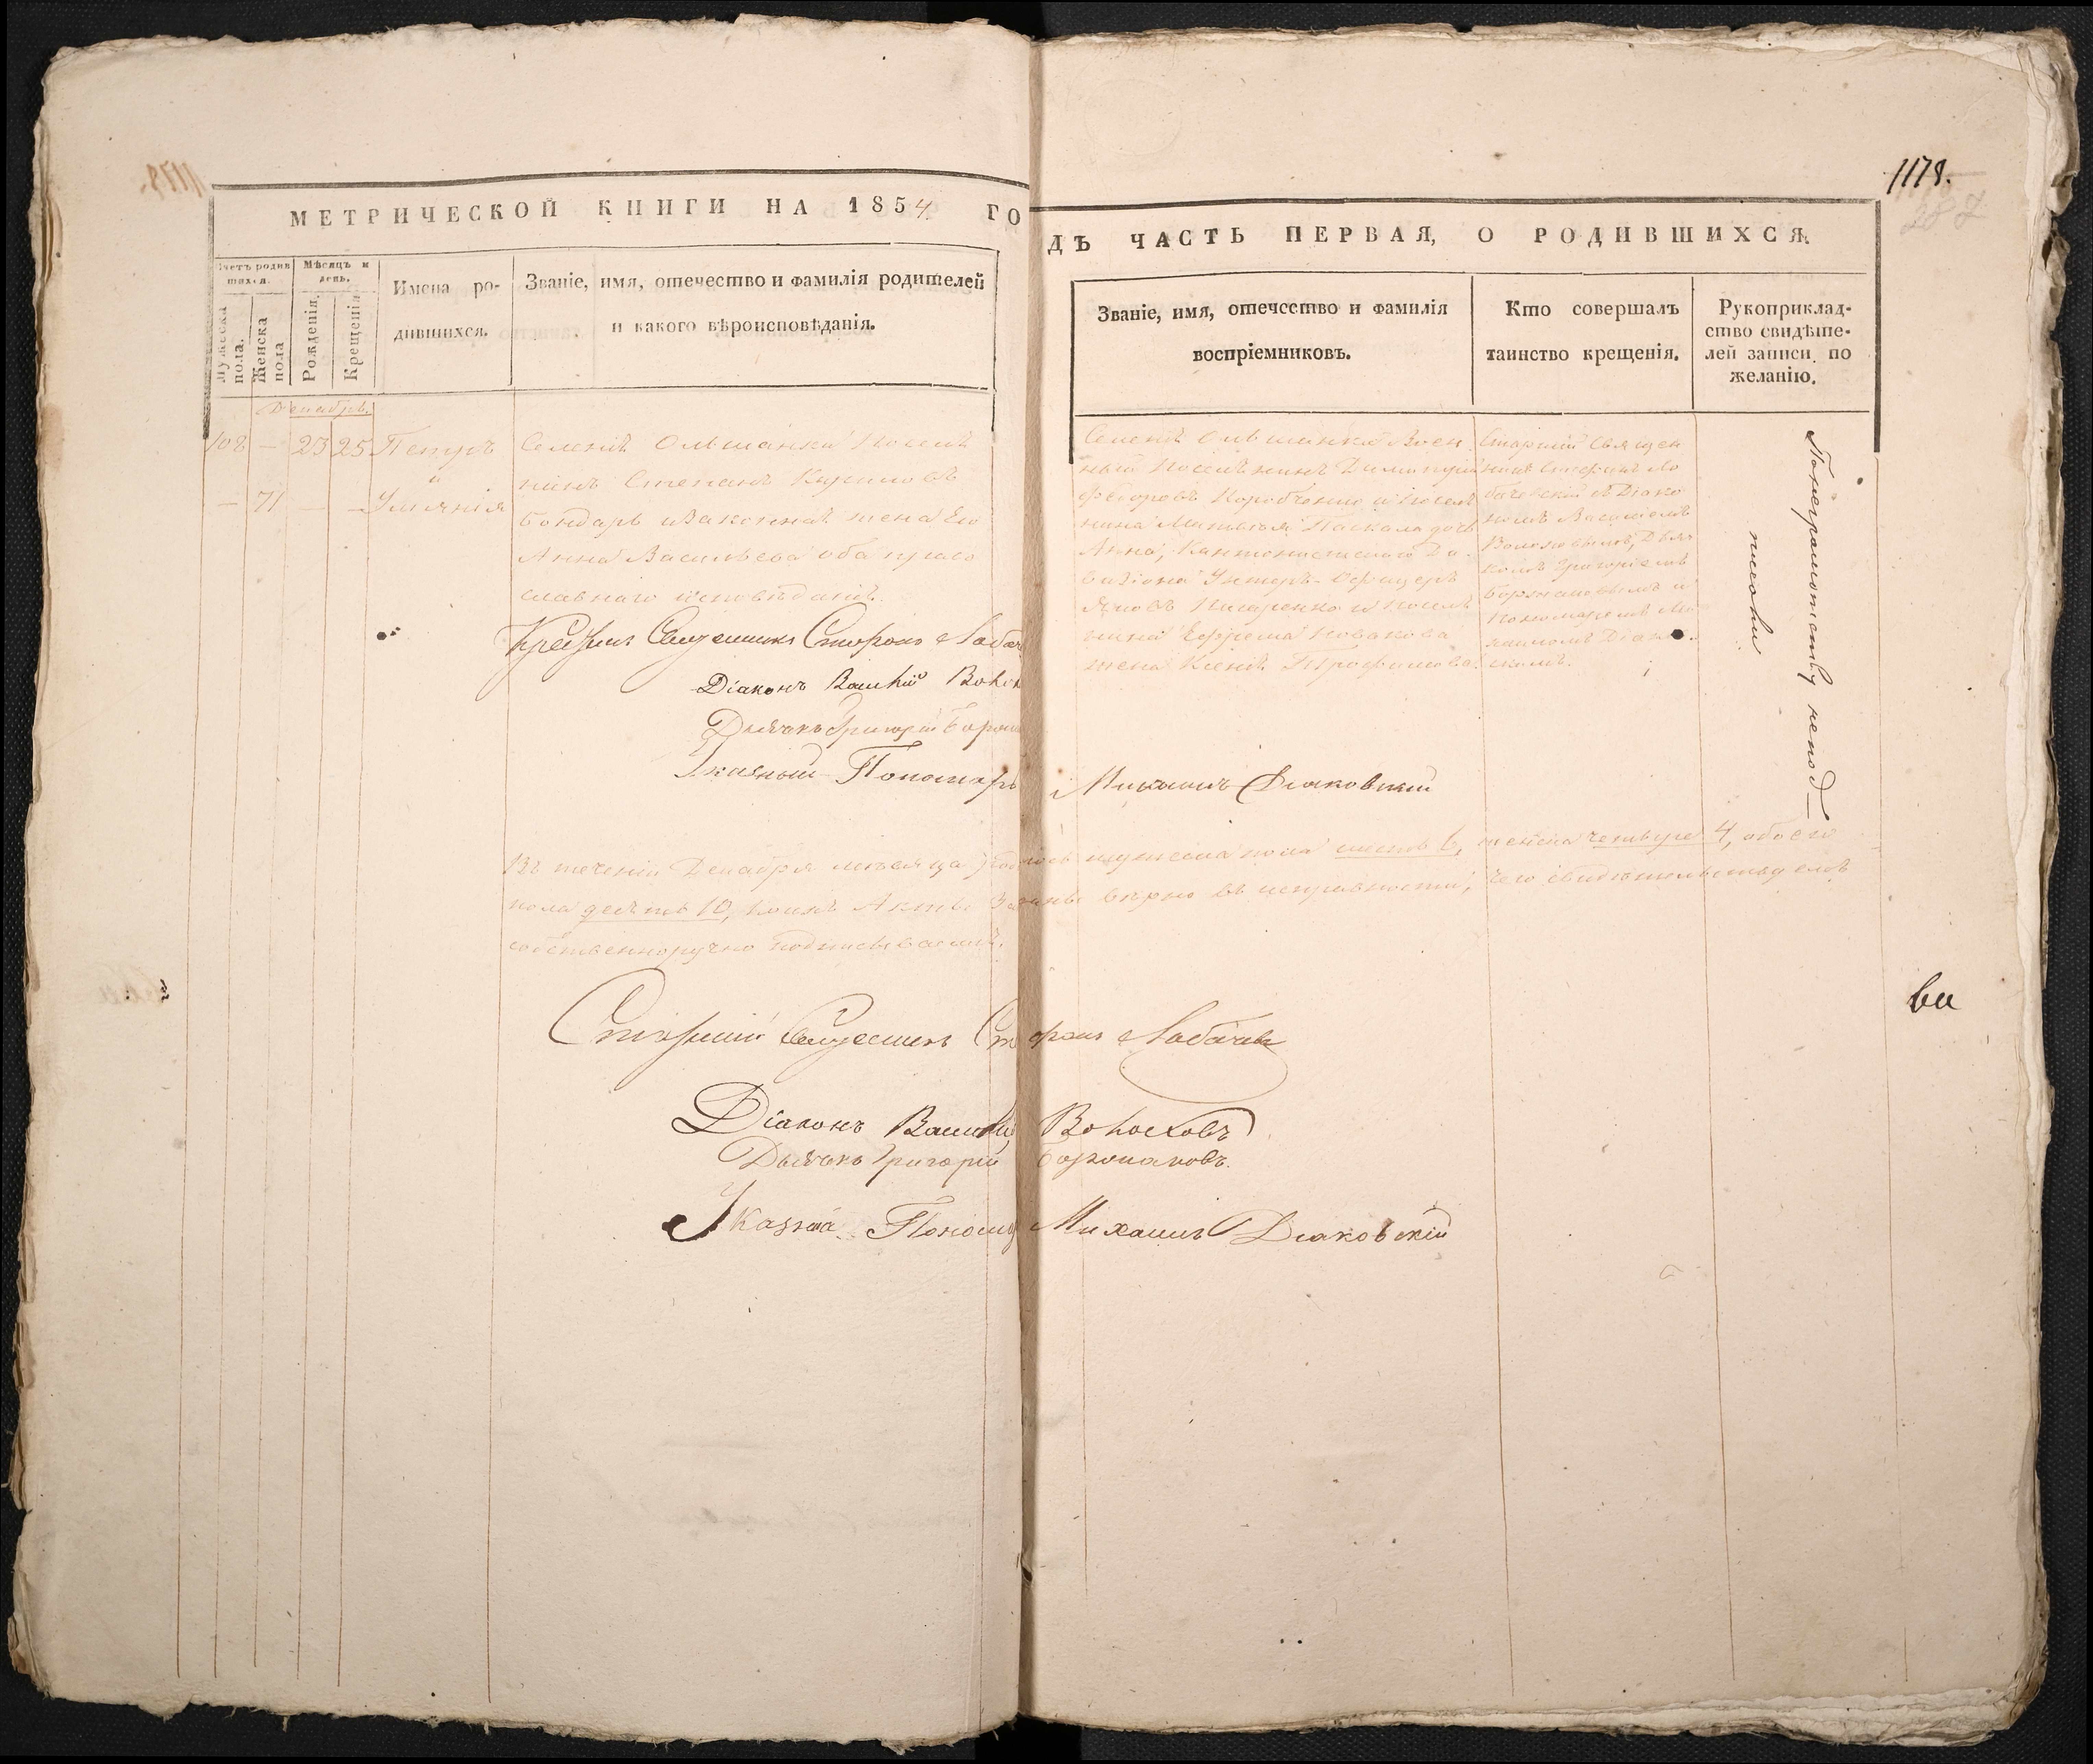 1178.
МЕТРИЧЕСКОЙ КНИГИ НА 1854 ГО
ДѢ ЧАСТЬ ПЕРВАЯ, О РОДИВШИХСЯ.
Счетъ родив
шихся.
Мужеска
пола.
Женска
пола
Мѣсяцъ и
день.
Рожденія.
Крещенія
Имена ро-
дившихся.
Званіе, имя, отечество и фамилія родителей
и какого вѣроисповѣданія.
Званіе, имя, отечество и фамилія
воспріемниковъ.
Кто совершалъ
таинство крещенія.
Рукоприклад-
ство свидѣте-
лей записи по
желанію.
Декабрь
108 — 23 25 Петръ
и
— 71 — — Уліянія
Селенія Ольшанки Поселя
нинъ Степанъ Кириловъ
Бондарь и Законная жена Его
Анна Васильева оба право
славнаго исповѣданія.
Селенія Ольшанки Воен
ный Поселянинъ Димитрій
Федоровъ Коробченко и Поселя
нина Матвѣя Паскала дочь
Анна, Кантонистскаго Ди
визіона Унтеръ-Офицеръ
Яковъ Писаренко и Поселя
нина Ефрема Новакова
жена Ксенія Трофимова.
Старшій Священ
никъ Стефанъ Ло
бачевскій съ Діако
номъ Василіемъ
Волосковымъ, Дьяч
комъ Григоріемъ
Боржаковымъ и
Пономаремъ Ми
хаиломъ Діаков
скимъ.
Понеграмотству непод—
писали
Крестилъ Священникъ Стефанъ Лобач
Діаконъ Василій Волос
Дьячокъ Григорій
Указный Пономарь Михаилъ Діаковскій
Въ теченіи Декабря мѣсяца родилось мужеска пола шесть 6, женска четыре 4, обоего
пола десять 10, коихъ Акты Записаны вѣрно въ исправности, чего свидѣтельствуемъ
собственноручно подписываемся.
Старшій Священникъ Стефанъ Лобачев
Діаконъ Василій Волосковъ
Дьячокъ Григорій
Указный Пономарь Михаилъ Діаковскій